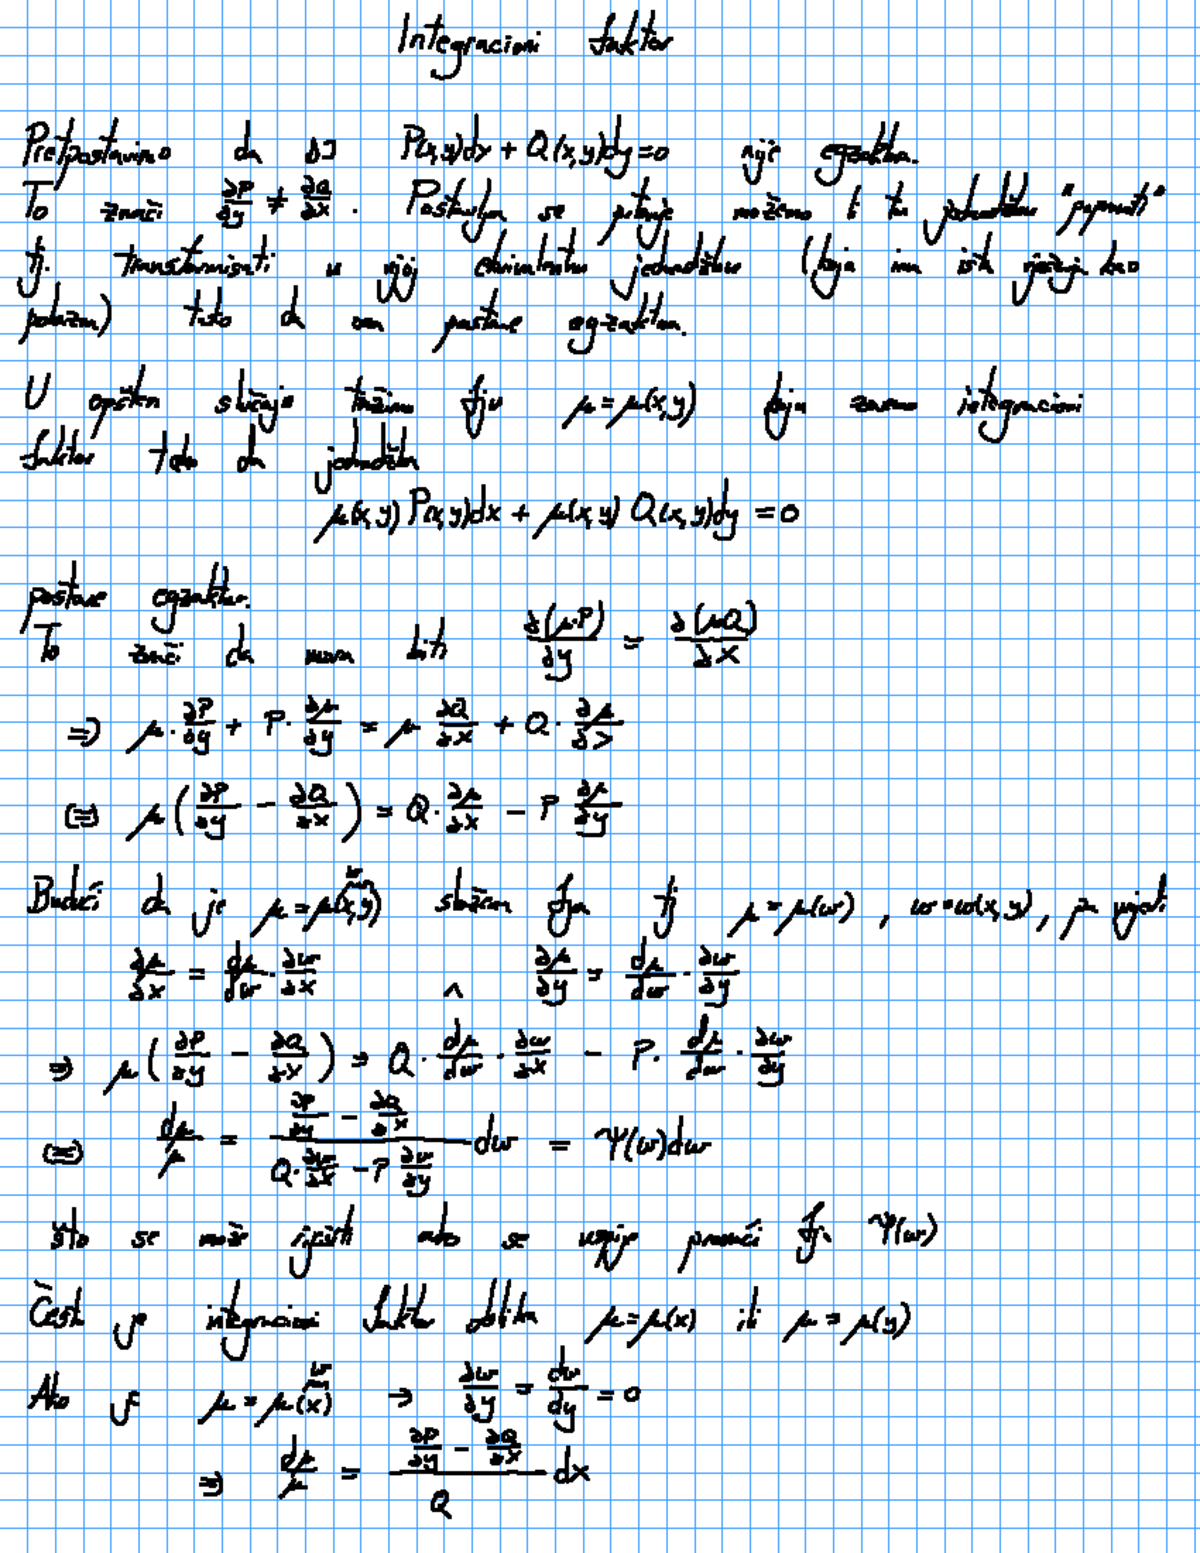 Integracioni faktor
Pretpostavimo da DJ P(x,y)dx + Q(x,y)dy = 0 nije egzaktna.
To znači ∂P/∂y ≠ ∂Q/∂x. Postavlja se pitanje možemo li tu jednadžbu "popraviti"
tj. transformisati u njoj ekvivalentnu jednadžbu (koja ima ista rješenja kao
polazna) tako da ona postane egzaktna.
U opštem slučaju tražimo fju μ = μ(x,y) koja zovemo integracioni
faktor tako da jednadžba
μ(x,y) P(x,y)dx + μ(x,y) Q(x,y)dy = 0
postane egzaktna.
To znači da mora biti ∂(μ·P)/∂y = ∂(μQ)/∂x
⇒ μ·∂P/∂y + P·∂μ/∂y = μ ∂Q/∂x + Q·∂μ/∂x
⇔ μ(∂P/∂y - ∂Q/∂x) = Q·∂μ/∂x - P ∂μ/∂y
Budući da je μ = μ(x,y) složena fja tj μ = μ(w), w = w(x,y), pa vrijedi
∂μ/∂x = dμ/dw · ∂w/∂x ∧ ∂μ/∂y = dμ/dw · ∂w/∂y
⇒ μ(∂P/∂y - ∂Q/∂x) = Q · dμ/dw · ∂w/∂x - P · dμ/dw · ∂w/∂y
⇔ dμ/μ = (∂P/∂y - ∂Q/∂x)/(Q·∂w/∂x - P ∂w/∂y) dw = Ψ(w)dw
što se može riješiti ako se uspije pronaći fja Ψ(w)
Često je integracioni faktor oblika μ = μ(x) ili μ = μ(y)
Ako je μ = μ(x) ⇒ ∂w/∂y = dw/dy = 0
⇒ dμ/μ = (∂P/∂y - ∂Q/∂x)/Q dx